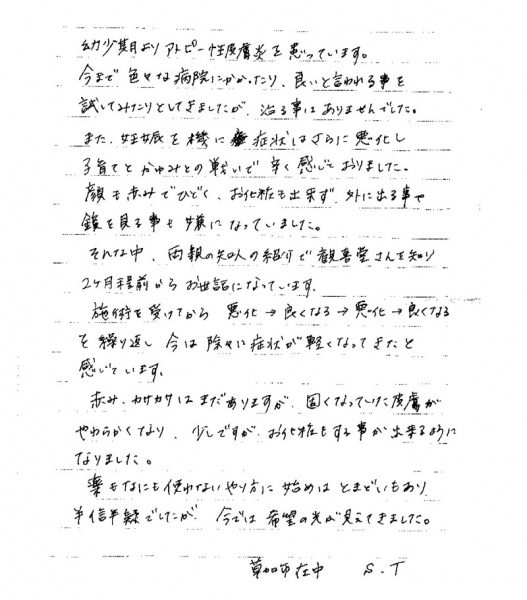 幼少期よりアトピー性皮膚炎を患っています。
今まで色々な病院にかかったり、良いと言われる事を
試してみたりとしてきましたが、治る事はありませんでした。
また、妊娠を機に症状はさらに悪化し
子育てとかゆみとの戦いで辛く感じておりました。
顔も赤みでひどく、お化粧も出来ず、外に出る事や
鏡を見る事も嫌になっていました。
そんな中、両親の知人の紹介で観喜堂さんを知り
2ヶ月程前からお世話になっています。
施術を受けてから 悪化→良くなる→悪化→良くなる
を繰り返し 今は除々に症状が軽くなってきたと
感じています。
赤み、カサカサはまだありますが、固くなっていた皮膚が
やわらかくなり、少しですが、お化粧もする事が出来るように
なりました。
薬もなにも使わないやり方に 始めはとまどいもあり
半信半疑でしたが 今では 希望の光が見えてきました。
草加市在中 S.T